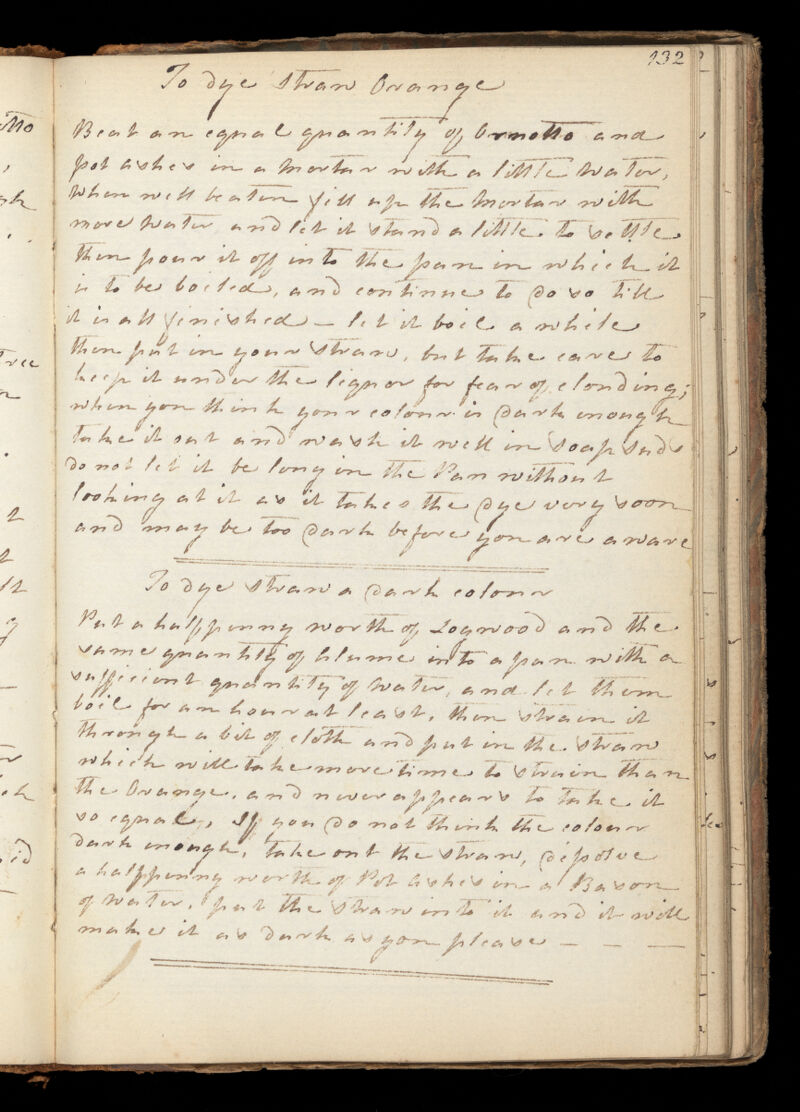 132
To dye Straw Orange
Beat an equal quantity of Ornotto and
pot ashes in a Mortar with a little Water,
When well beaten fill up the Mortar with
more Water and let it stand a little to settle
then pour it off into the pan in which it
is to be boiled, and continue to do so till
it is all finished – let it boil a while
then put in your straw, but take care to
keep it under the liquor for fear of clouding;
when you think your colour is dark enough
take it out and wash it well in Soap Suds
do not let it be long in the Pan without
looking at it as it takes the dye very soon
and may be too dark before you are aware
To dye Straw a dark colour
Put a halfpenny worth of Logwood and the
same quantity of Alume into a pan with a
sufficient quantity of Water, and let them
boil for an hour at least, then strain it
through a bit of cloth and put in the straw
which will take more time to strain than
the Orange, and never appears to take it
so equal, If you do not think the colour
dark enough, take out the straw, dissolve
a halfpenny worth of Pot Ashes in a Bason
of Water, put the straw into it and it will
make it as dark as you please – – –